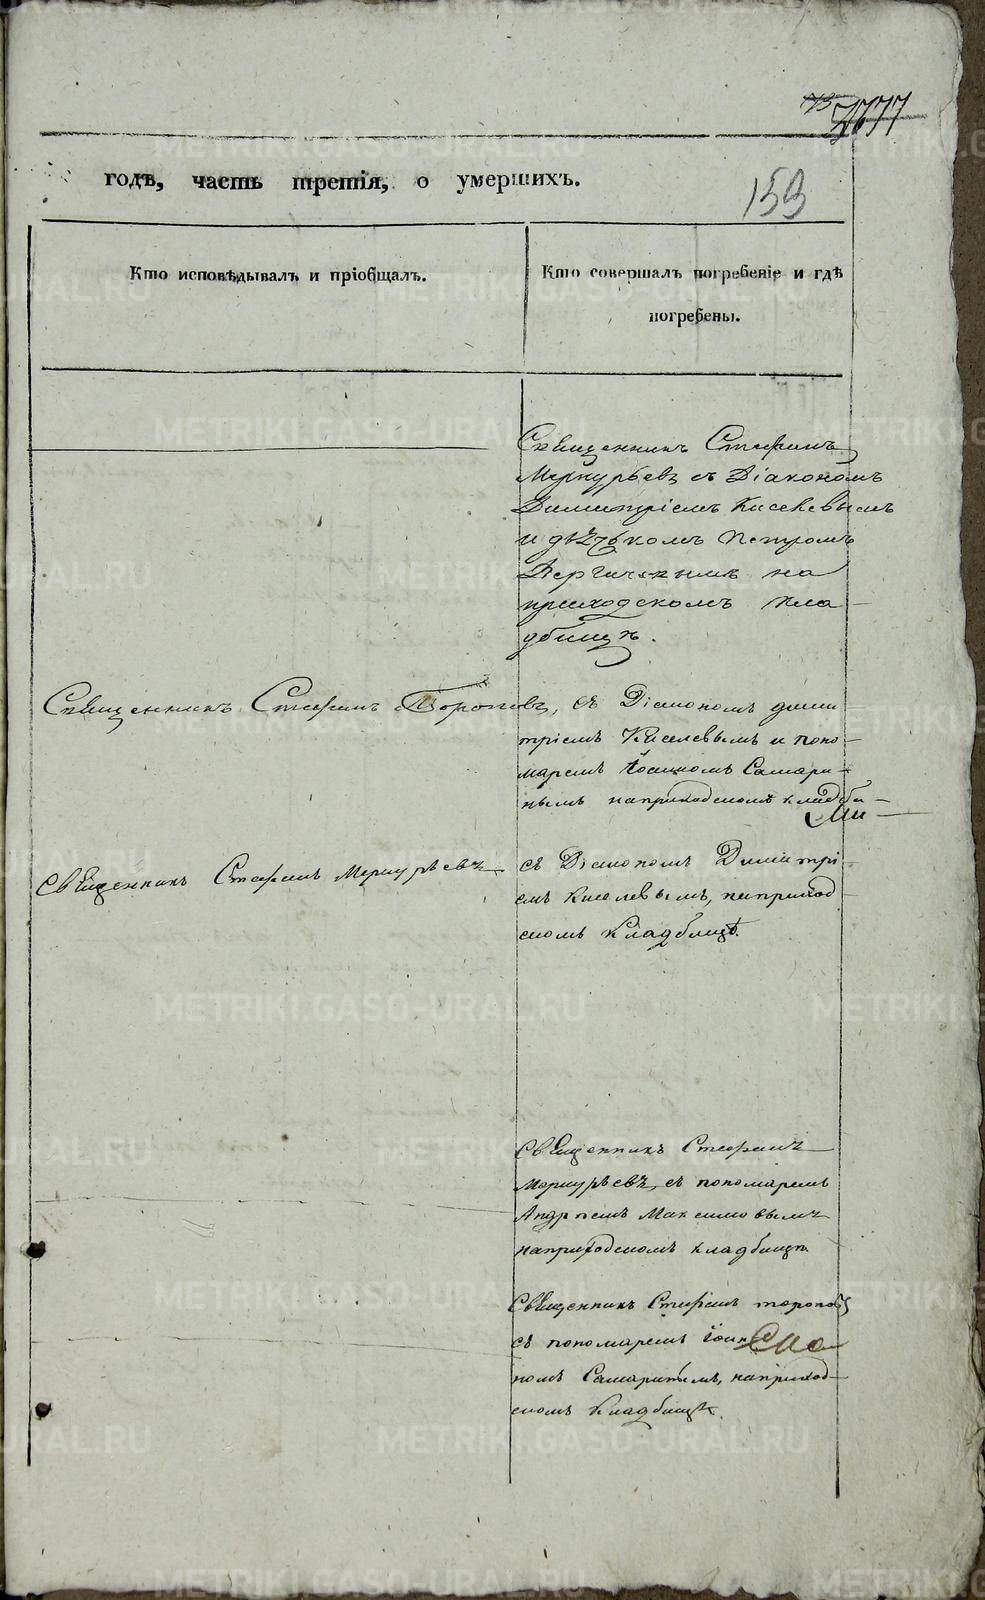 153
годѣ, часть третія, о умершихъ.
Кто исповѣдывалъ и пріобщалъ.
Кто совершалъ погребеніе и гдѣ
погребены.
Священникъ Стефанъ
Меркурьевъ съ Діакономъ
Димитріемъ Киселевымъ
и дьячкомъ Петромъ
на
приходскомъ кла
дбищѣ.
Священникъ Стефанъ Тороповъ, съ Діакономъ дими
тріемъ Киселевымъ и поно
маремъ Іоанномъ Самари
нымъ на приходскомъ кладби
Священникъ Стефанъ Меркурьевъ съ Діакономъ Димитрі
емъ Киселевымъ, на приход
скомъ Кладбищѣ.
Священникъ Стефанъ
Меркурьевъ, съ пономаремъ
Андреемъ Максимовымъ
на приходскомъ кладбищѣ.
Священникъ Стефанъ тороповъ
съ пономаремъ Іоан
номъ Самаринымъ, на приход
скомъ Кладбищѣ.
METRIKI.GASO-URAL.RU